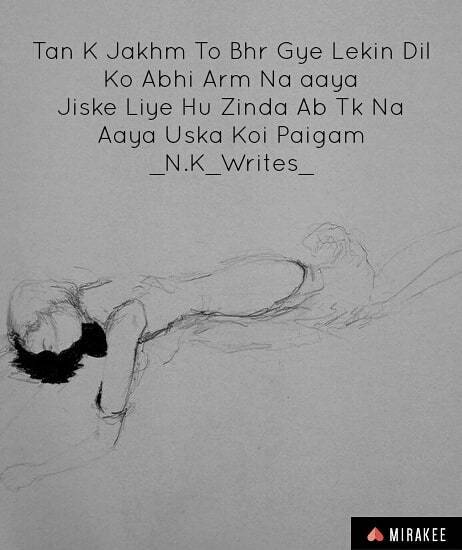 Tan K Jakhm To Bhr Gye Lekin Dil
Ko Abhi Arm Na aaya
Jiske Liye Hu Zinda Ab Tk Na
Aaya Uska Koi Paigam
_N.K_Writes_
MIRAKEE